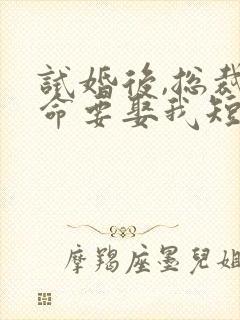 試婚後,總裁
命要娶我短
摩羯座墨兒姐